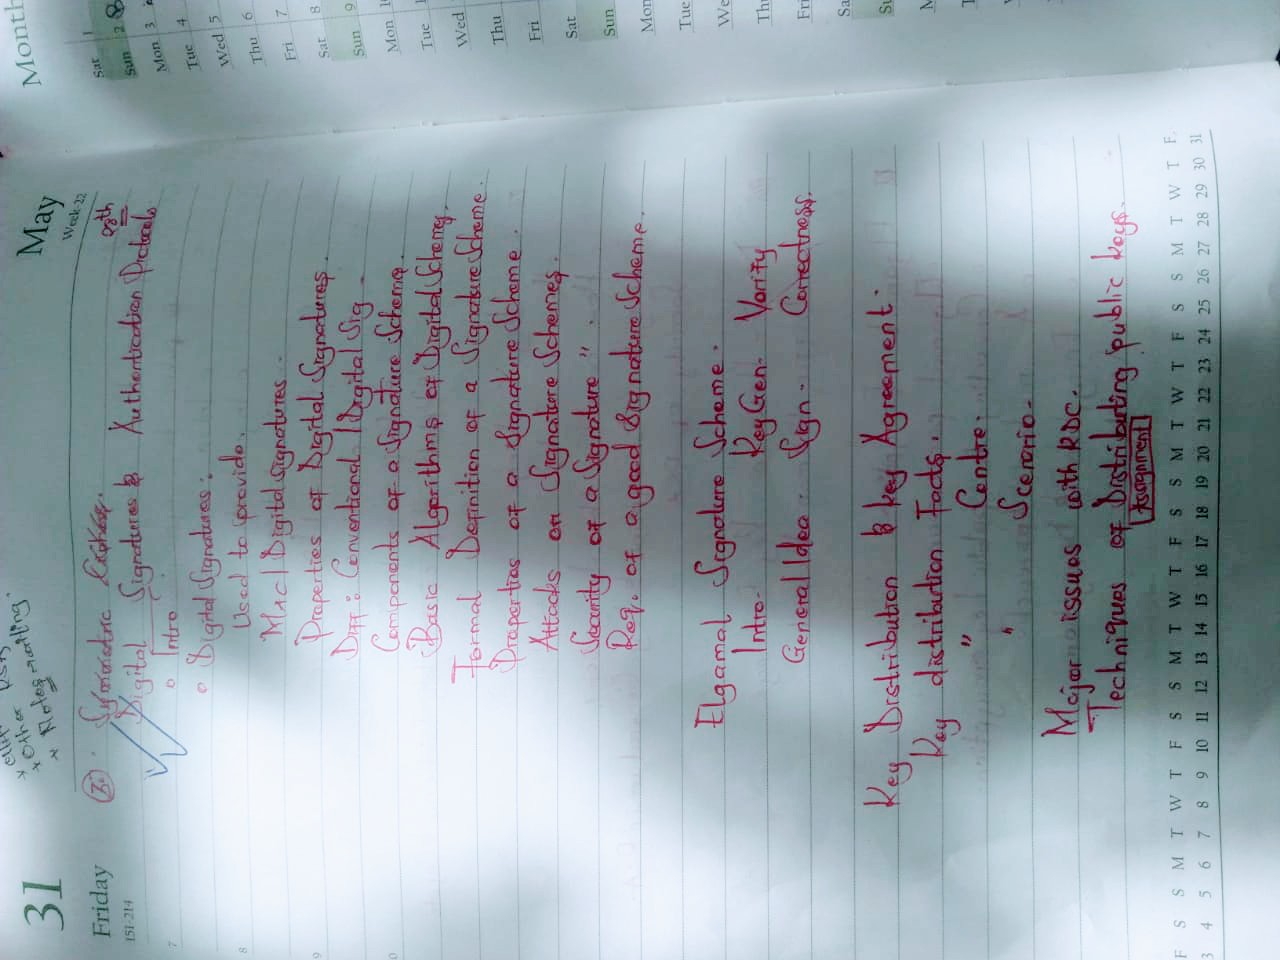 31
May
Friday
Week-22
151-214
* Other
* Notes marking.
3.
Symmetric
28th
Digital Signatures & Authentication Protocols
o Intro
o Digital Signatures:
Used to provide.
Mac | Digital Signatures.
Properties of Digital Signatures.
Diff: Conventional | Digital Sig.
Components of a Signature Scheme.
Basic Algorithms of Digital Schemes.
Formal Definition of a Signature Scheme.
Properties of a Signature Scheme.
Attacks on Signature Schemes.
Security of a Signature " .
Req. of a good Signature Scheme.
Elgamal Signature Scheme.
Intro. Key Gen. Verify
General Idea. Sign. Correctness.
Key Distribution & Key Agreement.
Key distribution Facts.
" Centre.
" Scenerio.
Major issues with KDC.
Techniques of Distributing public keys.
Assignment
F S S M T W T F S S M T W T F S S M T W T F S S M T W T F
3 4 5 6 7 8 9 10 11 12 13 14 15 16 17 18 19 20 21 22 23 24 25 26 27 28 29 30 31
7
8
9
Month
Sat 1
Sun 2
Mon 3
Tue 4
Wed 5
Thu 6
Fri 7
Sat 8
Sun 9
Mon
Tue
Wed
Thu
Fri
Sat
Sun
Mon
Tue
We
Thu
Fri
Sa
Su